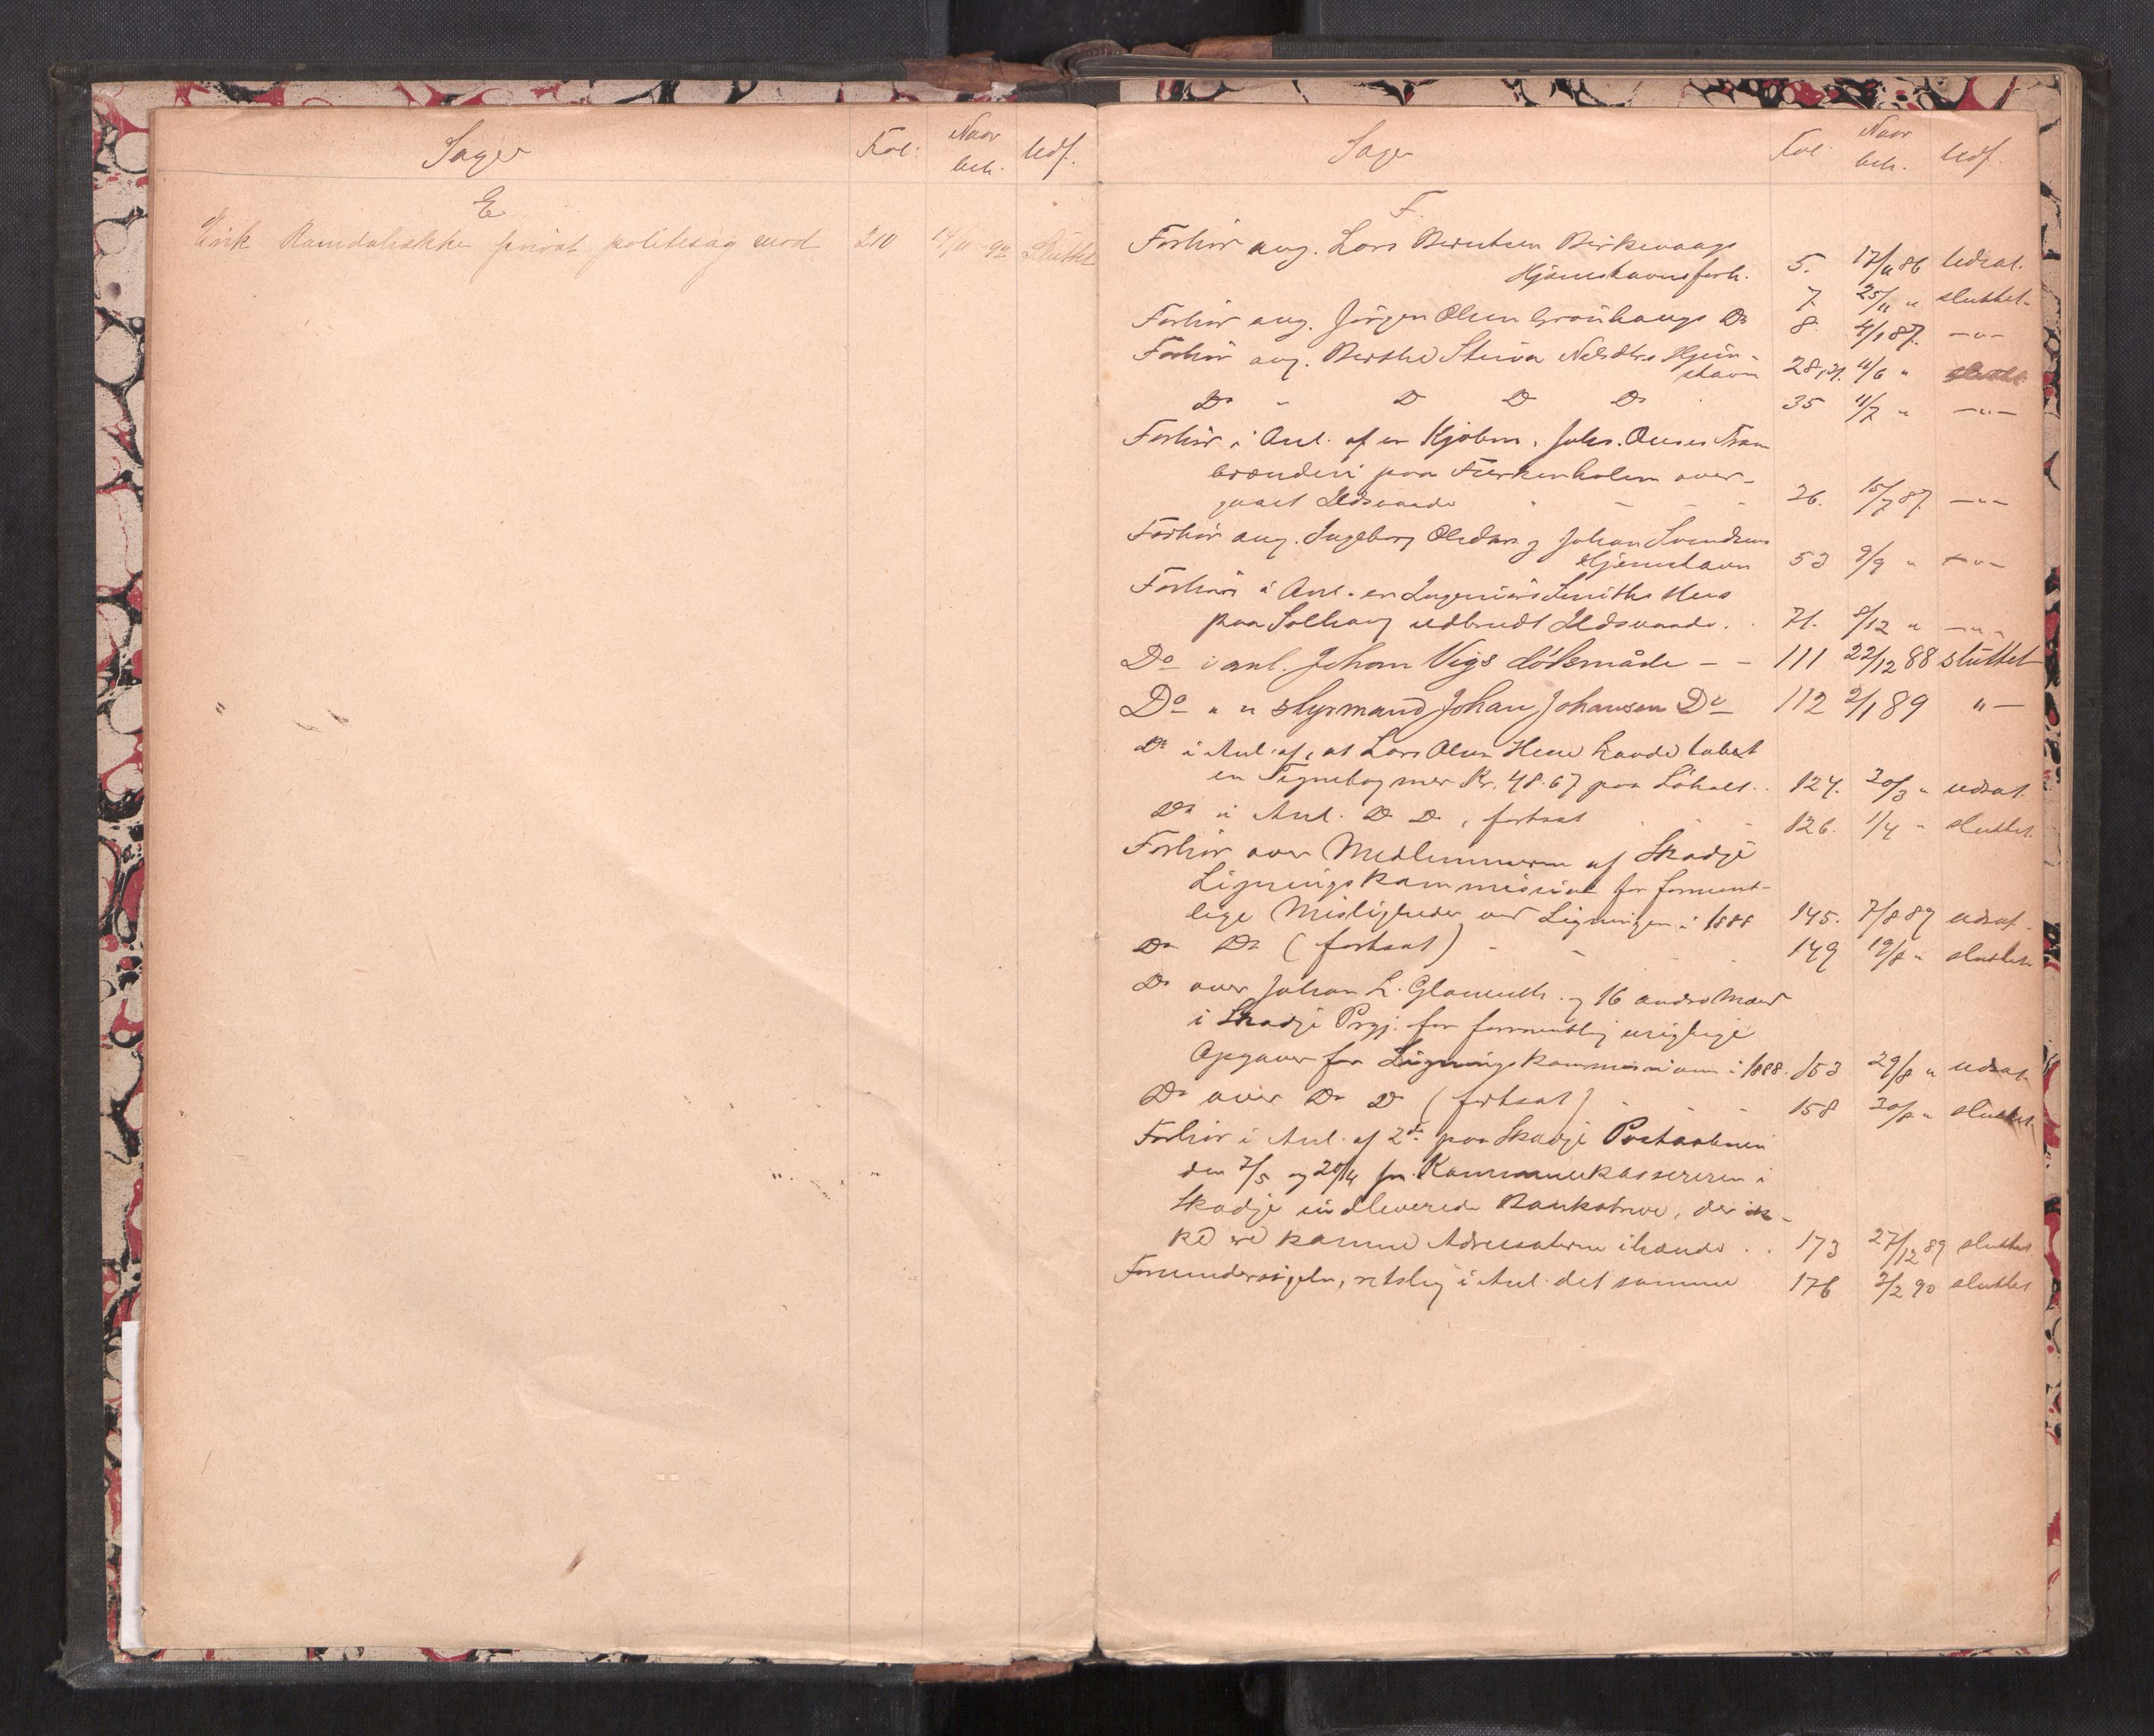 Sager Fol: Naar beh. Udf.
E
Erik Ramdalsakke privat politisag mod 210 19/11-92 Sluttet
Sager Fol. Naar beh. Udf.
F.
Forhør ang. Lars Berntsen Birkevaags
Hjemstavnsforh. 5. 17/11 86 Udsat.
7. 25/11 " sluttet.
Forhør ang. Jørgen Olsen Grønhaugs Do 8. 4/1 87. -"-
Forhør ang. Berthe Nelsdtrs Hjem-
stavn 28, 31. 11/6 " sluttet
Do " Do Do Do 35 11/7 " -"-
Forhør i Anl. af en Kjøbm. Johs. Tran
brænderi paa over-
gaaet Ildsvaade 26. 15/7 87. -"-
Forhør ang. Ingeborg Olsdtrs og Johan Svendsens
Hjemstavn 53 9/9 " -"-
Forhør i Anl. en Ingeniør Smiths Hus
paa Solhaug udbrudt Ildsvaade. 71. 8/12 " -"-
Do i anl. Johan Vigs dødsmåde - - 111 22/12 88 sluttet
Do " " styrmand Johan Johansen Do 112 2/1 89 "-
Do i Anl. af, at Lars Olsen Hove havde tabet
en Tegnebog med Kr. 48.67 paa 124. 30/3 " udsat.
Do i Anl. Do Do, fortsat 126. 1/4 " sluttet.
Forhør over Medlemmerne af Skodje
Ligningskommission for forment-
lige Misligheder ved Ligningen i 1888 145. 7/8 89 udsat.
Do Do (fortsat) - - 149 19/8 " sluttet
Do over Johan L. og 16 andre Mænd
i Skodje Prgj. for formentlig urigtige
Opgaver for Ligningskommissionen i 1888. 153 29/8 " udsat.
Do over Do Do (fortsat) - - - 158 30/8 " sluttet
Forhør i Anl. af 2de paa Skodje Postaabneri
den 7/5 og 20/4 fra Kommunekassereren i
Skodje indleverede Bankbreve, der ik-
ke ere komne Adressaterne ihænde . . 173 27/12 89 sluttet
Forundersøgelse, retslig i Anl. det samme 176 3/2 90 sluttet